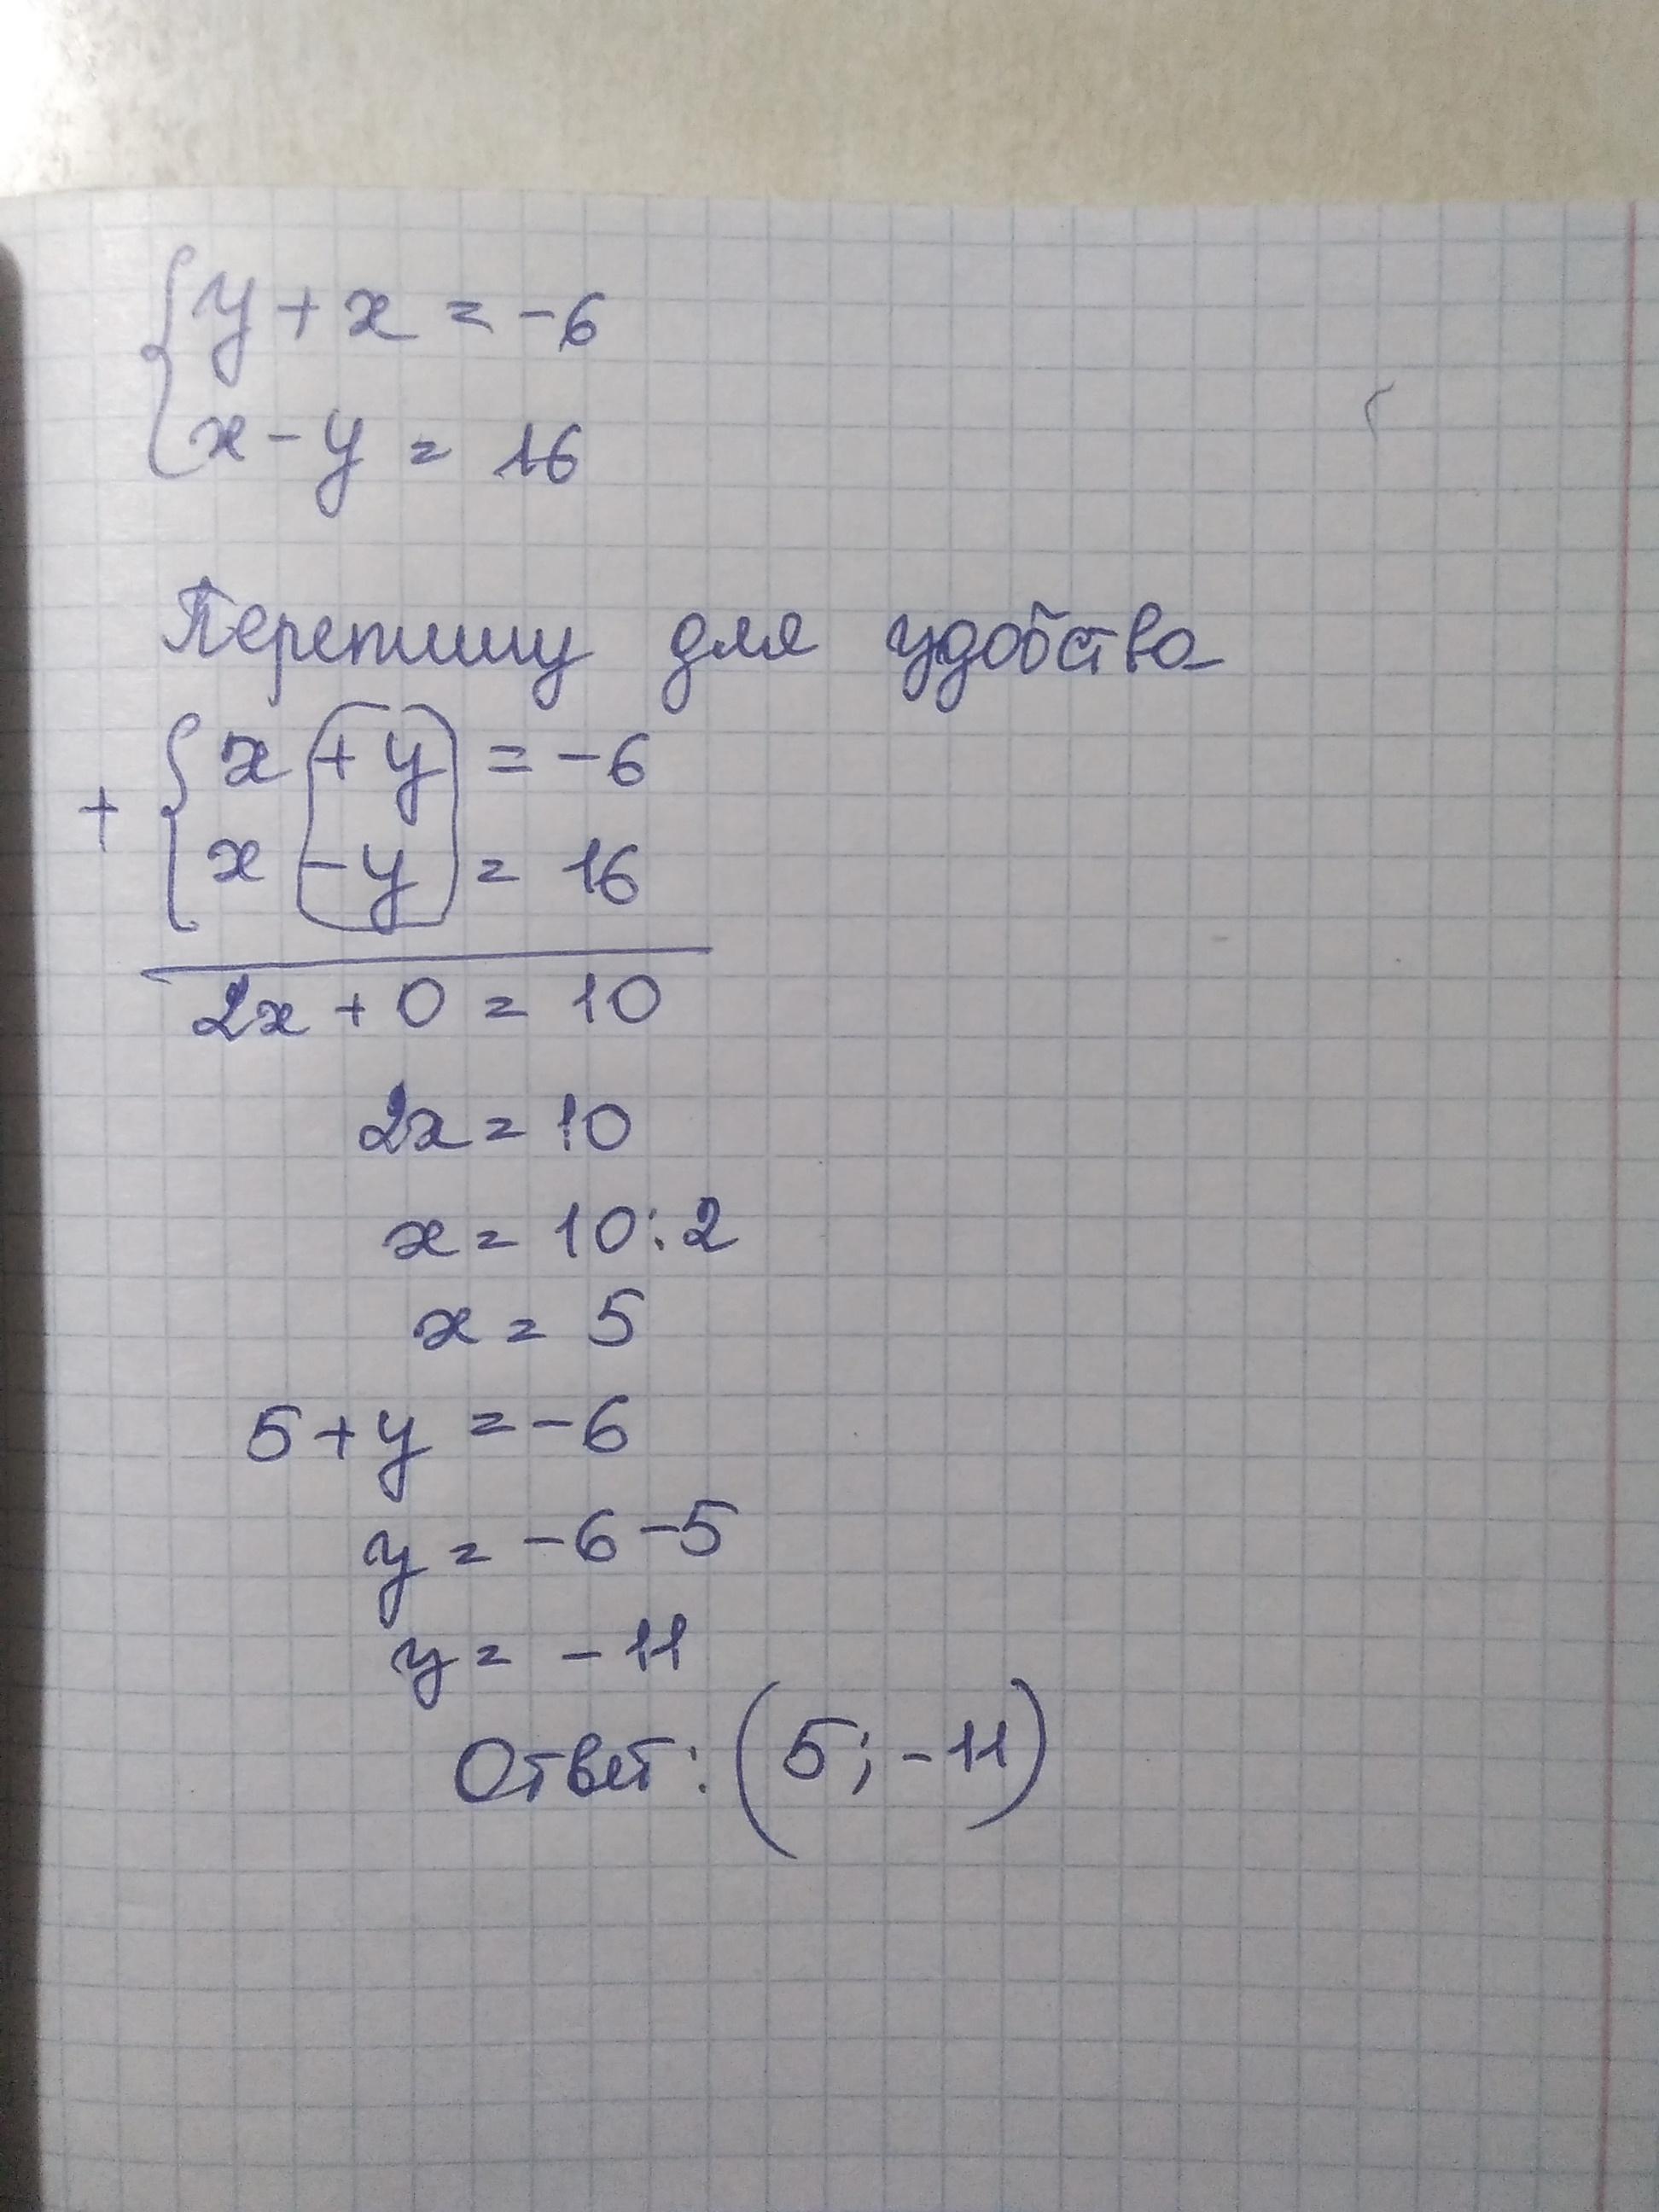 { y + x = -6
x - y = 16
Перепишу для удобства
{ x + y = -6
+
x - y = 16
2x + 0 = 10
2x = 10
x = 10 : 2
x = 5
5 + y = -6
y = -6 - 5
y = -11
Ответ: (5; -11)